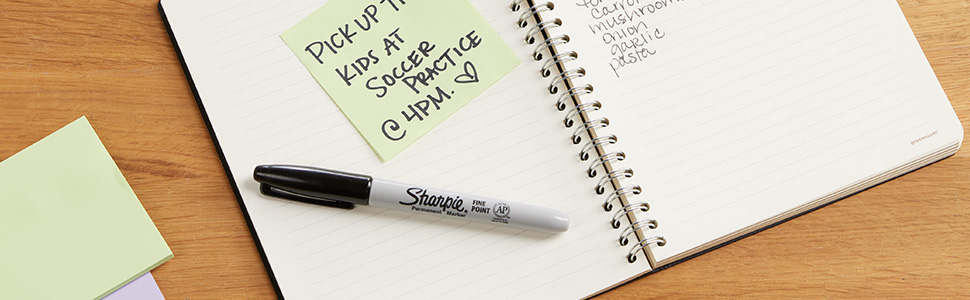 PICK UP TH
KIDS AT
SOCCER
PRACTICE
@ 4PM. ♡
carrot
mushrooms
onion
garlic
pasta
Sharpie®
Permanent Marker
FINE
POINT
AP
greenroom